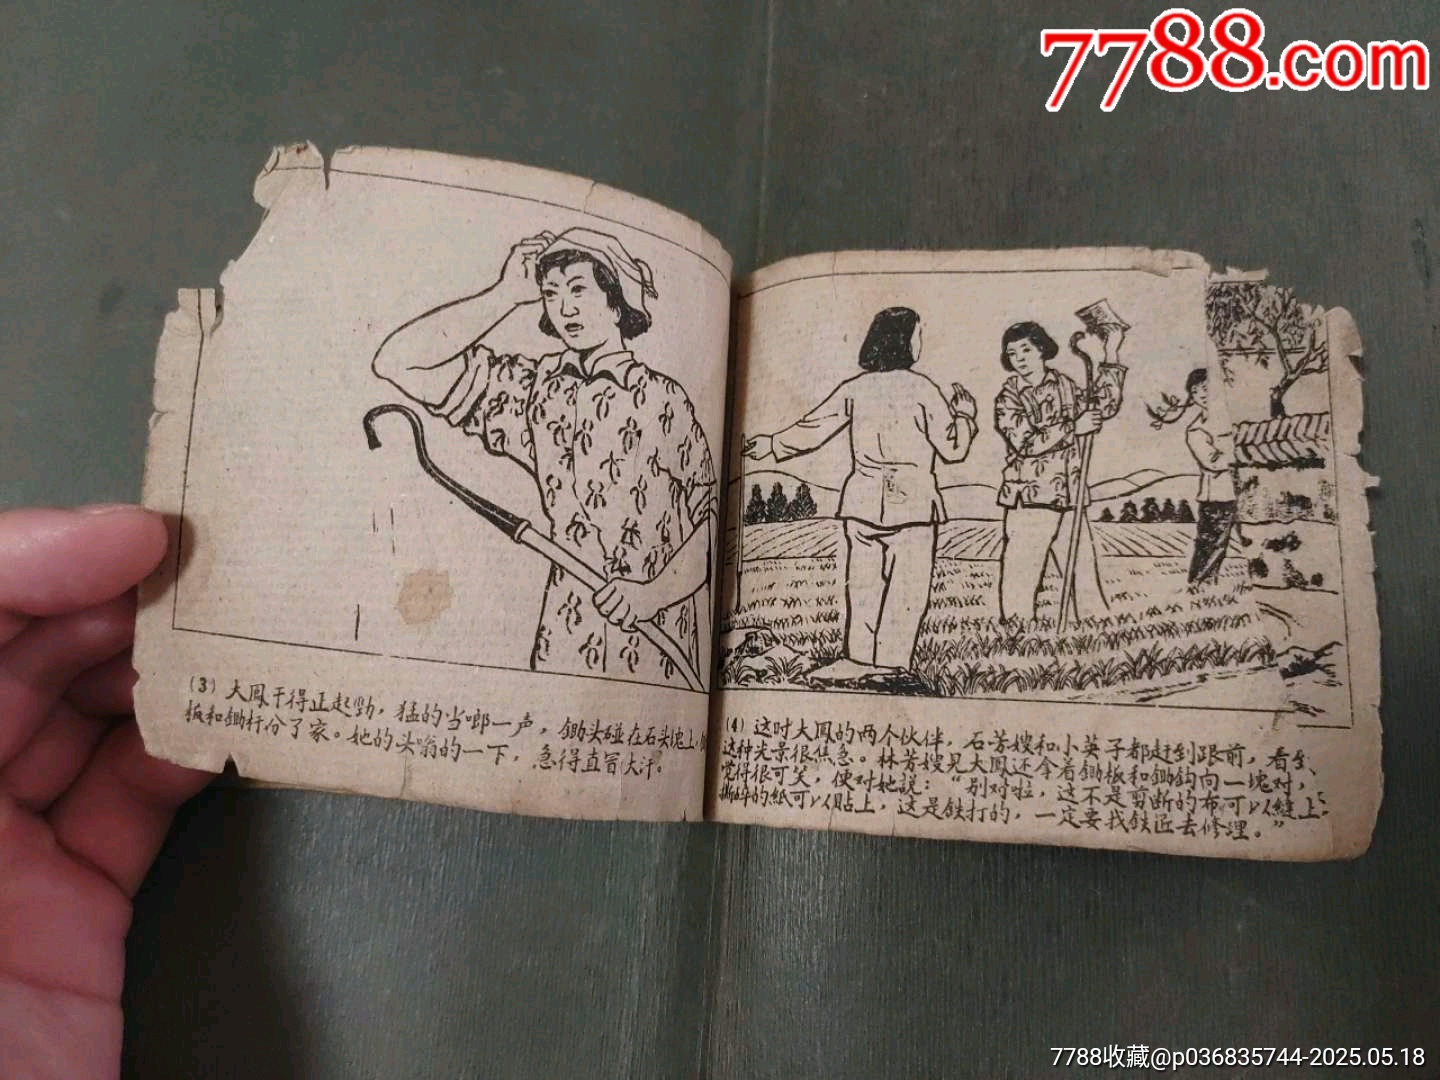 7788.com
(3) 大鳳干得正起勁，猛的当啷一声，鋤头碰在石头塊上，
板和鋤杆分了家。她的头嗡的一下，急得直冒大汗。
(4) 这时大鳳的两个伙伴，石芳嫂和小英子都赶到跟前，看到
这种光景很焦急。林芳嫂见大鳳还拿着鋤板和鋤鈎向一塊对，
觉得很可笑，便对她說：“别对啦，这不是剪断的布可以縫上；
撕碎的紙可以貼上，这是铁打的，一定要找铁匠去修理。”
7788收藏@p036835744-2025.05.18